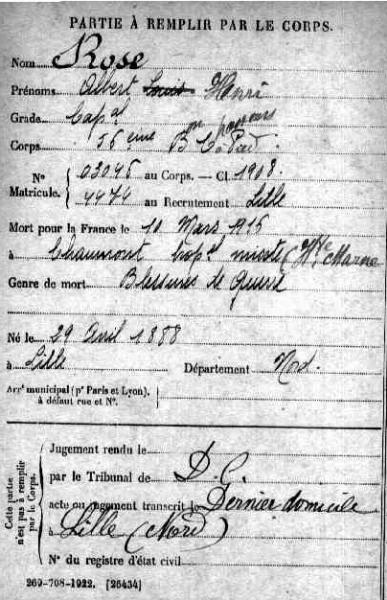 PARTIE À REMPLIR PAR LE CORPS.
Nom Rose
Prénoms Albert Louis Henri
Grade Cap^al
Corps 56 ème B^on chasseurs à Pied
N° Matricule. { 03045 au Corps. — Cl. 1908.
4474 au Recrutement Lille
Mort pour la France le 10 Mars 1916
à Chaumont hop^al mixte (H^te Marne
Genre de mort Blessures de guerre
Né le 29 Avril 1888
à Lille Département Nord.
Arr^t municipal (p^r Paris et Lyon),
à défaut rue et N°.
Cette partie
n'est pas à remplir
par le Corps.
Jugement rendu le
par le Tribunal de D. C.
acte ou jugement transcrit le Dernier domicile
à Lille (Nord)
N° du registre d'état civil
269-708-1922. [26434]